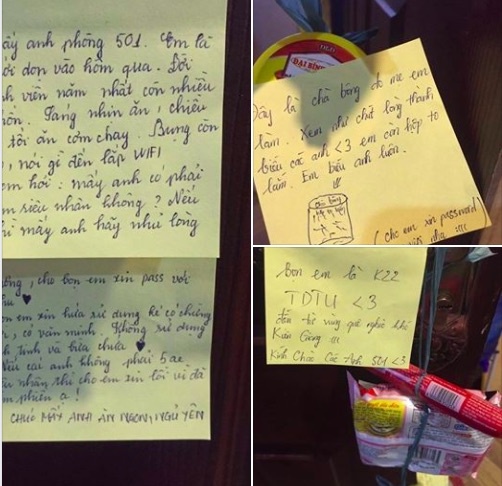 ấy anh phòng 501. Em là
ới dọn vào hôm qua. Đời
h viên năm nhất còn nhiều
hôn. Sáng nhịn ăn, chiều
tối ăn cơm chay. Bụng còn
, nói gì đến lắp WIFI
em hỏi : mấy anh có phải
m siêu nhân không ? Nếu
hì mấy anh hãy như lòng
ông, cho bọn em xin pass với
n em xin hứa sử dụng kẻ có chừng
, có văn minh. Không sử dụng
h tinh và bừa
Nếu các anh không phải 5 ae
nhân thì cho em xin lỗi vì đã
m phiền ạ !
CHÚC MẤY ANH ĂN NGON, NGỦ YÊN
ĐẠI
Đây là chà bông do mẹ em
làm. Xem như chút lòng thành
biếu các anh <3 em còn hộp to
lắm. Em biếu anh luôn.
Chà Bông
( cho em xin password
với nha !!!
bọn em là K22
TDTU <3
đến từ vùng quê nghèo khó
Kiên Giang !!!
Kính Chào Các Anh 501 <3